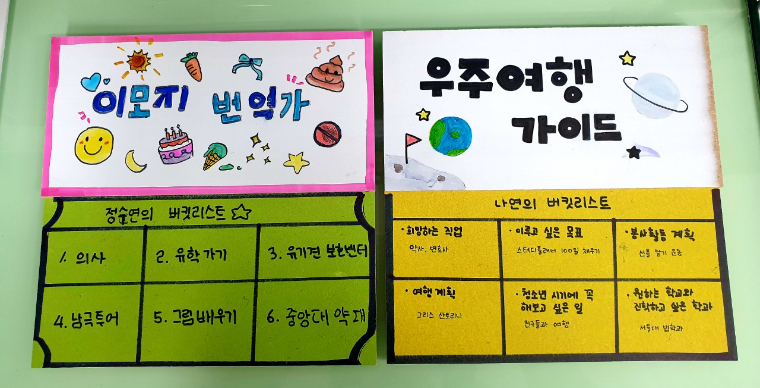 이모지 번역가
정슬연의 버킷리스트
1. 의사
2. 유학 가기
3. 유기견 보호센터
4. 남극투어
5. 그림 배우기
6. 중앙대 약대
우주여행
가이드
나연의 버킷리스트
· 희망하는 직업
약사, 변호사
· 이루고 싶은 목표
스터디플래너 100일 채우기
· 봉사활동 계획
선플 달기 운동
· 여행 계획
그리스 산토리니
· 청소년 시기에 꼭
해보고 싶은 일
친구들과 여행
· 원하는 학교와
진학하고 싶은 학과
서울대 법학과